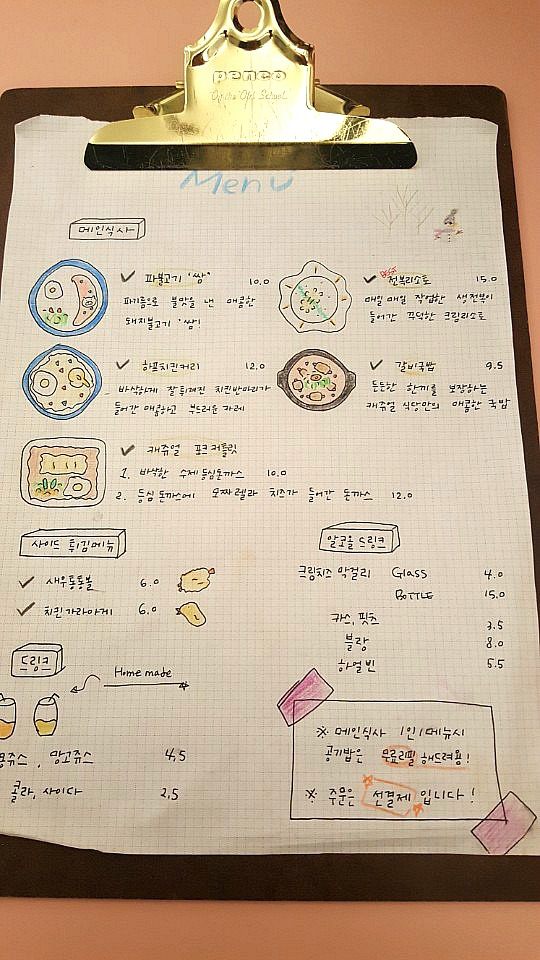 penco
"On the Old School"
Menu
메인식사
✓ 파불고기 "쌈" 10.0
파기름으로 불맛을 낸 매콤한
돼지불고기 "쌈!
✓ 하프치킨커리 12.0
바삭하게 잘 튀겨진 치킨반마리가
들어간 매콤하고 부드러운 카레
✓ 캐쥬얼 포크커틀릿
1. 바삭한 수제등심돈까스 10.0
2. 등심 돈까스에 모짜렐라 치즈가 들어간 돈까스 12.0
BEST
✓ 전복리소토 15.0
매일매일 작업한 생전복이
들어간 꾸덕한 크림리소토
✓ 갈비국밥 9.5
든든한 한끼를 보장하는
캐쥬얼 식당만의 매콤한 국밥
사이드 튀김메뉴
✓ 새우퐁퐁볼 6.0
✓ 치킨가라아게 6.0
드링크
Home made
쥬스, 망고쥬스 4,5
콜라, 사이다 2,5
알코올 드링크
크림치즈 막걸리 Glass 4.0
BOTTLE 15.0
카스, 핏츠 3.5
블랑 8.0
하얼빈 5.5
※ 메인식사 1인1메뉴시
공기밥은 무료리필 해드려용!
※ 주문은 선결제 입니다!